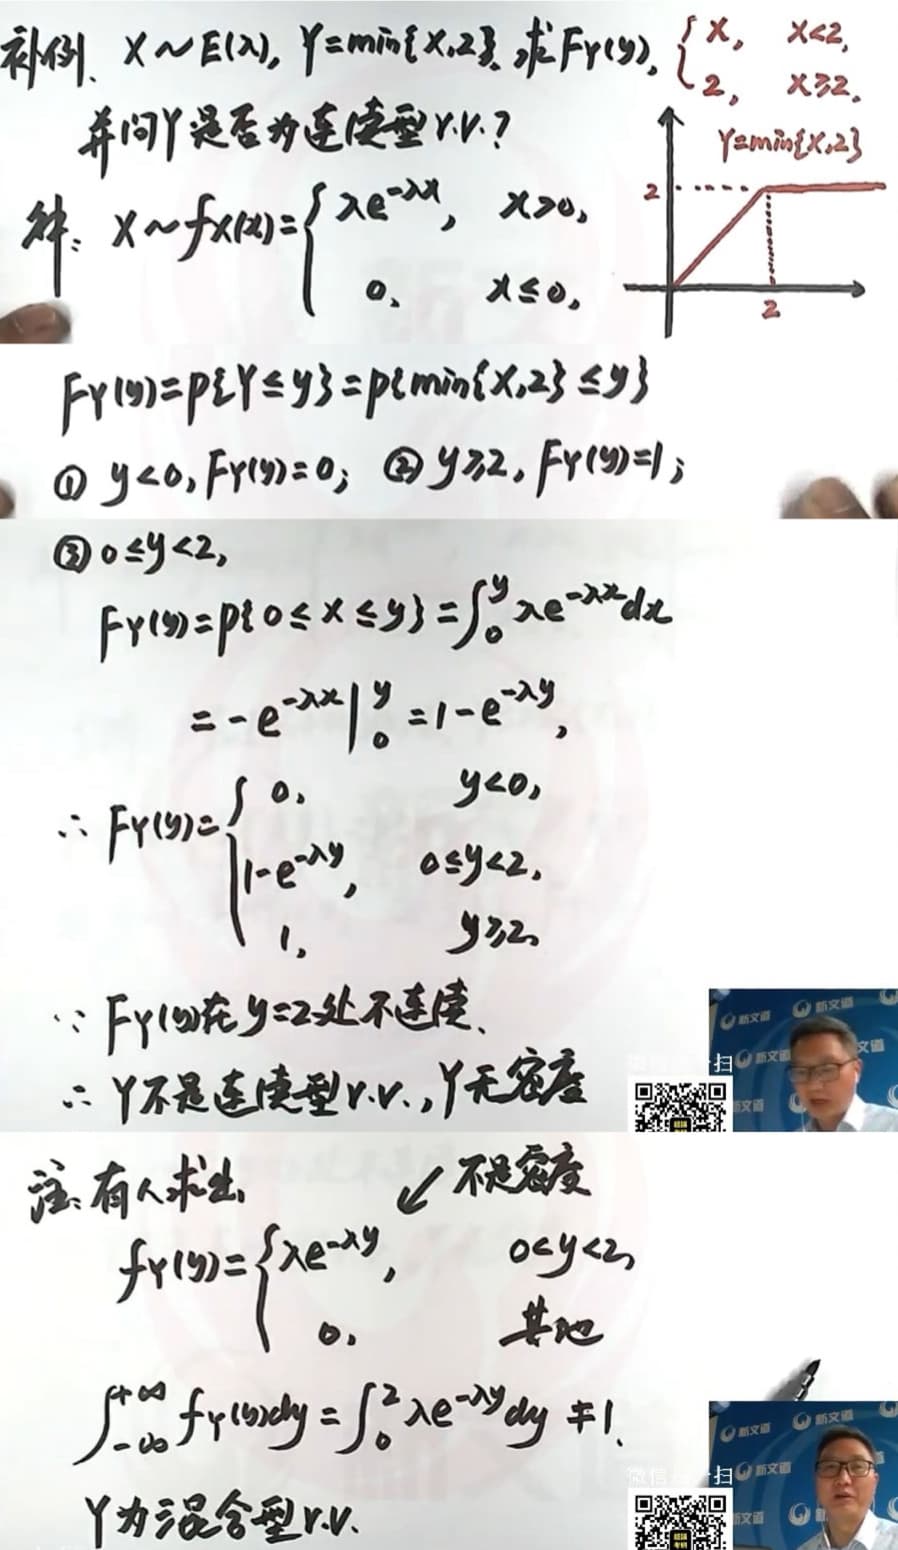 补例、X~E(λ), Y=min{X,2}, 求F_Y(y), { X, X<2,
2, X≥2.
并问Y是否为连续型r.v.?
Y=min{X,2}
2
解: X~f_X(x)={ λe^{-λx}, x>0,
0, x≤0,
2
F_Y(y)=P{Y≤y}=P{min{X,2}≤y}
① y<0, F_Y(y)=0; ② y≥2, F_Y(y)=1;
③ 0≤y<2,
F_Y(y)=P{0≤X≤y}=∫_0^y λe^{-λx}dx
=-e^{-λx}|_0^y=1-e^{-λy},
∴ F_Y(y)={ 0, y<0,
1-e^{-λy}, 0≤y<2,
1, y≥2,
∵ F_Y(y)在y=2处不连续、
∴ Y不是连续型r.v., Y无密度
扫
新文道
新文道
新文道
文道
新文道
注: 有人求出, ↙不是密度
f_Y(y)={ λe^{-λy}, 0<y<2,
0, 其他
∫_{-∞}^{+∞} f_Y(y)dy=∫_0^2 λe^{-λy}dy≠1.
Y为混合型r.v.
微信扫一扫
新文道
新文道
新文道
新文道